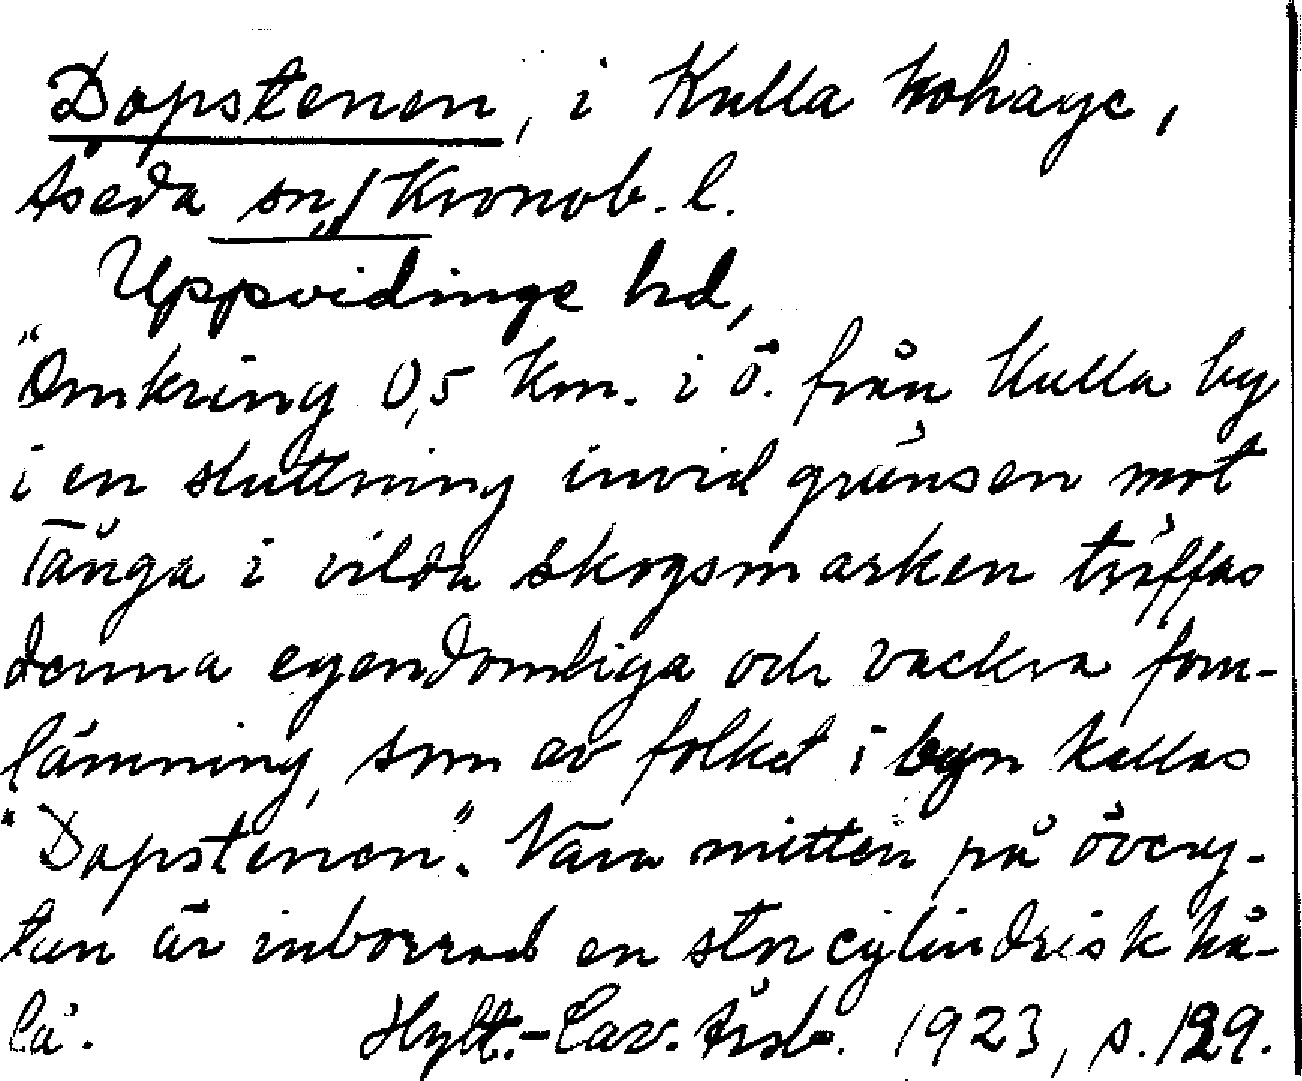 Dopstenen, i Kulla kohage,
Åseda sn, / Kronob. l.
Uppvidinge hd,
"Omkring 0,5 km. i ö. från Kulla by
i en sluttning invid gränsen mot
Tånga i vilda skogsmarken träffas
denna egendomliga och vackra forn-
lämning, som av folket i byn kallas
"Dopstenen". Nära mitten på övery-
tan är inborrad en stor cylindrisk hå-
la.
Hylt.-Cav. Årsb. 1923, s. 129.